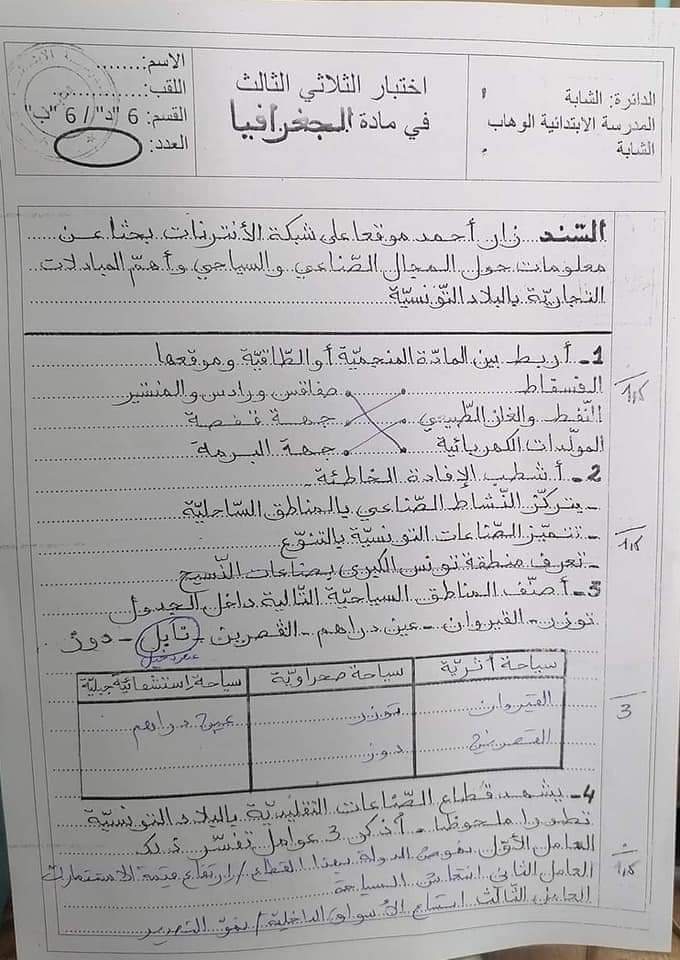 الدائرة: الشابة
المدرسة الابتدائية الوهاب
الشابة
اختبار الثلاثي الثالث
في مادة الجغرافيا
الاسم:
اللقب:
القسم: 6 "د" / 6 "ب"
العدد:
السّند زار أحمد موقعا على شبكة الأنترنات بحثا عن
معلومات حول المجال الصّناعي والسياحي وأهمّ المبادلات
التجاريّة بالبلاد التّونسيّة
1- أربط بين المادّة المنجميّة أو الطّاقيّة وموقعها
الفسفاط صفاقس ورادس والمنشير
النّفط والغاز الطّبيعي جهة قفصة
المولّدات الكهربائية جهة البرمة
1,5
2- أشطب الإفادة الخاطئة
- يتركّز النّشاط الصّناعي بالمناطق السّاحليّة
- تتميّز الصّناعات التونسيّة بالتنوّع
- تعرف منطقة تونس الكبرى بصناعات النّسيج
1,5
3- أصنّف المناطق السياحيّة التّالية داخل الجدول
توزر - القيروان - عين دراهم - القصرين - تابل - دوز
عنصر دخيل
سياحة أثريّة سياحة صحراويّة سياحة استشفائيّة جبليّة
القيروان توزر عين دراهم
القصرين دوز
3
4- يشهد قطاع الصّناعات التقليديّة بالبلاد التونسيّة
تطوّرا ملحوظا - أذكر 3 عوامل تفسّر ذلك
العامل الأوّل نهوض الدولة بهذا القطاع / ارتفاع قيمة الاستثمارات
العامل الثاني انتعاش السياحة
العامل الثّالث اتساع الأسواق الداخلية / نموّ التصدير
1,5